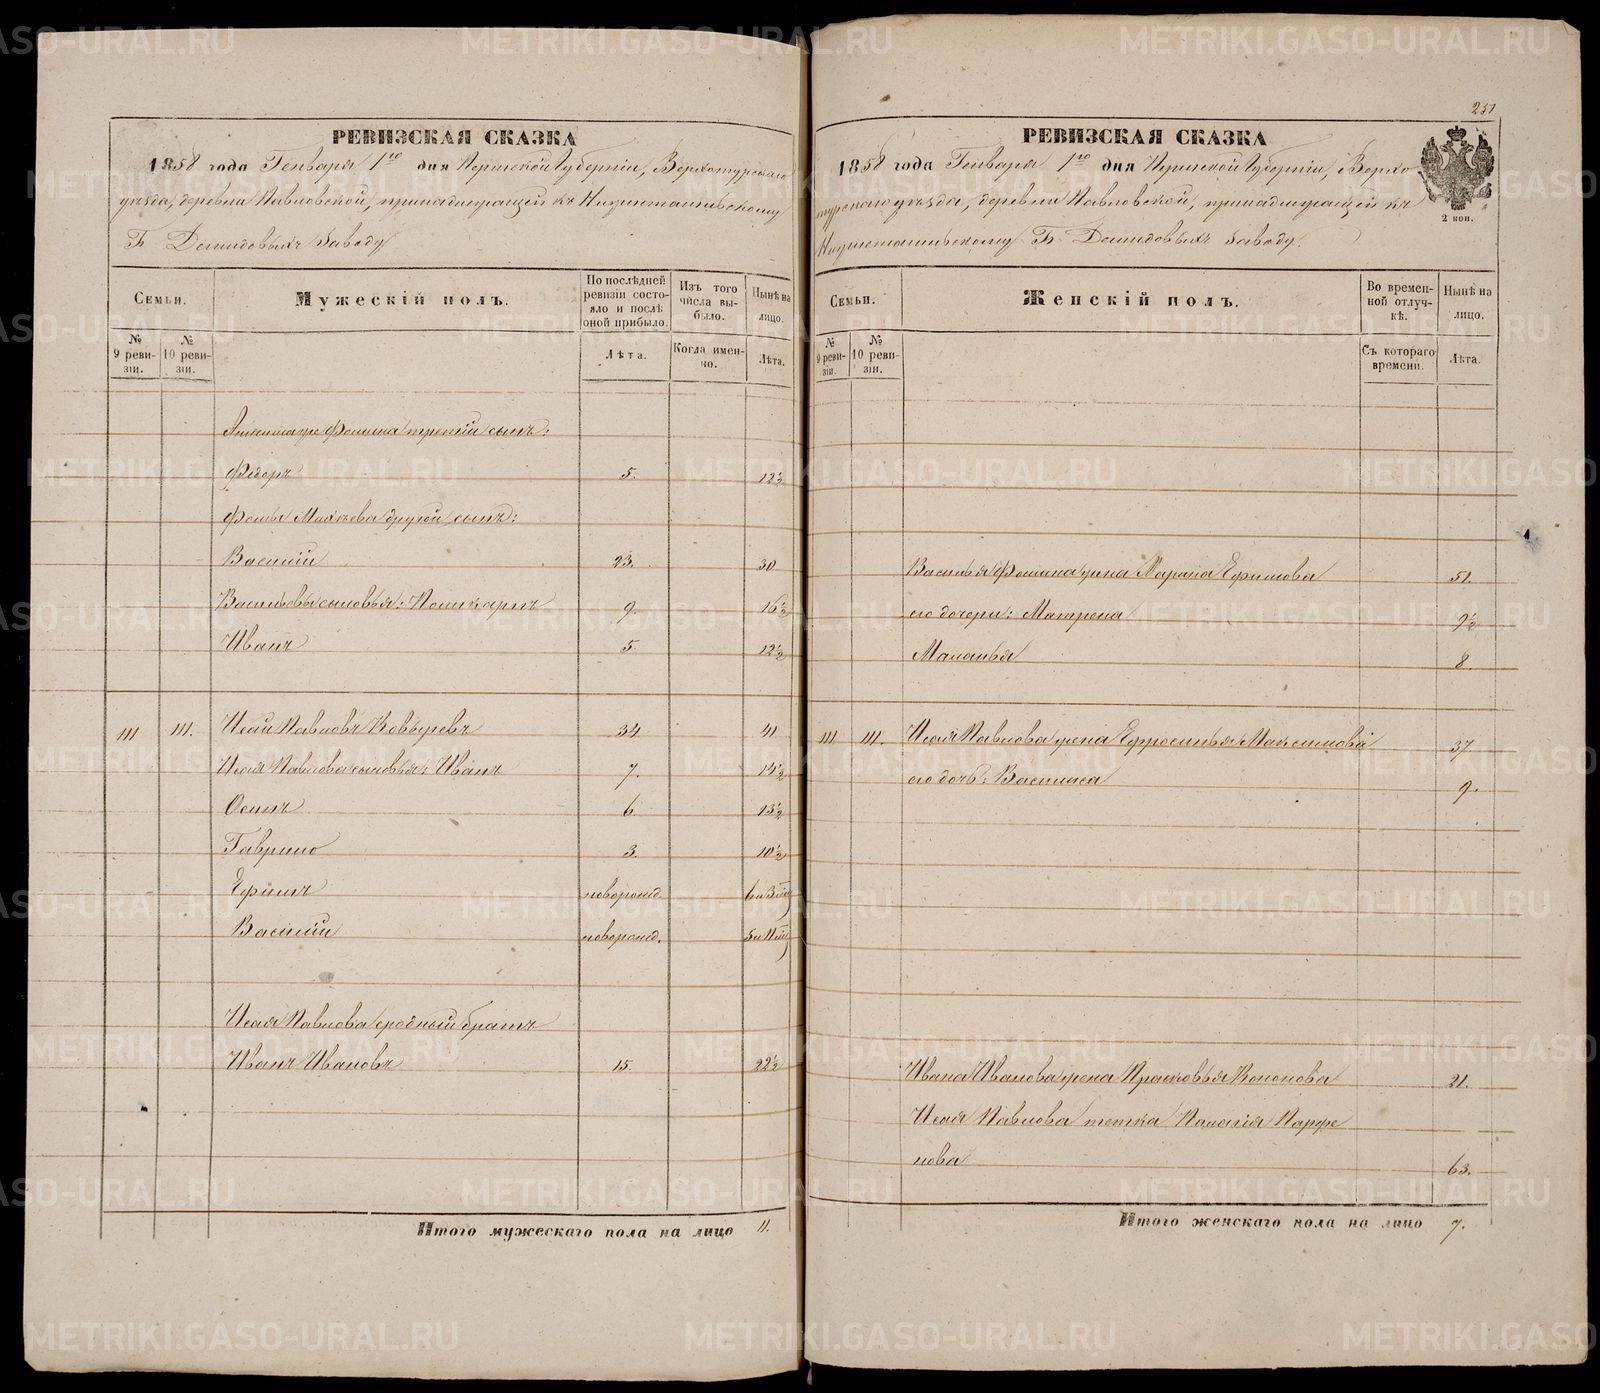 251
РЕВИЗСКАЯ СКАЗКА
1858 года Генваря 1го дня Пермской Губерніи, Верхотурскаго
уѣзда, деревни Павловской, принадлежащей къ Нижнетагильскому
Г. Демидовыхъ Заводу
Семьи.
Мужескій полъ.
По послѣдней ревизіи состояло и послѣ оной прибыло.
Изъ того числа выбыло.
Нынѣ на лицо.
№ 9 ревизіи.
№ 10 ревизіи.
Лѣта.
Когда именно.
Лѣта.
Фомина третій сынъ:
Федоръ 5. 12½
Фомы Михѣева другой сынъ:
Василій 23. 30
Васильевы сыновья: Поликарпъ 9. 16½
Иванъ 5. 12½
111 111. Исай Павловъ 34 41
Исая Павлова сыновья: Иванъ 7. 14½
Осипъ 6 13½
Гаврило 3. 10½
Ефимъ новорожд. 6 и 3 м)
Василій новорожд. 5 и 11 м)
Исая Павлова сродный братъ
Иванъ Ивановъ 15. 22½
Итого мужескаго пола на лицо 11.
РЕВИЗСКАЯ СКАЗКА
1858 года Генваря 1го дня Пермской Губерніи, Верхо
турскаго уѣзда, деревни Павловской, принадлежащей къ
Нижнетагильскому Г. Демидовыхъ Заводу.
2 коп.
Семьи.
Женскій полъ.
Во временной отлучкѣ.
Нынѣ на лицо.
№ 9 ревизіи.
№ 10 ревизіи.
Съ котораго времени.
Лѣта.
Василья Фомина жена Марина Ефимова 51.
его дочери: Матрена 9½
Маланья 8.
111 111. Исая Павлова жена Ефросинья Максимова 37
его дочь: Василиса 9.
Ивана Иванова жена Прасковья Кононова 21.
Исая Павлова тетка Палагія Парфе
нова 63.
Итого женскаго пола на лицо 7.
METRIKI.GASO-URAL.RU